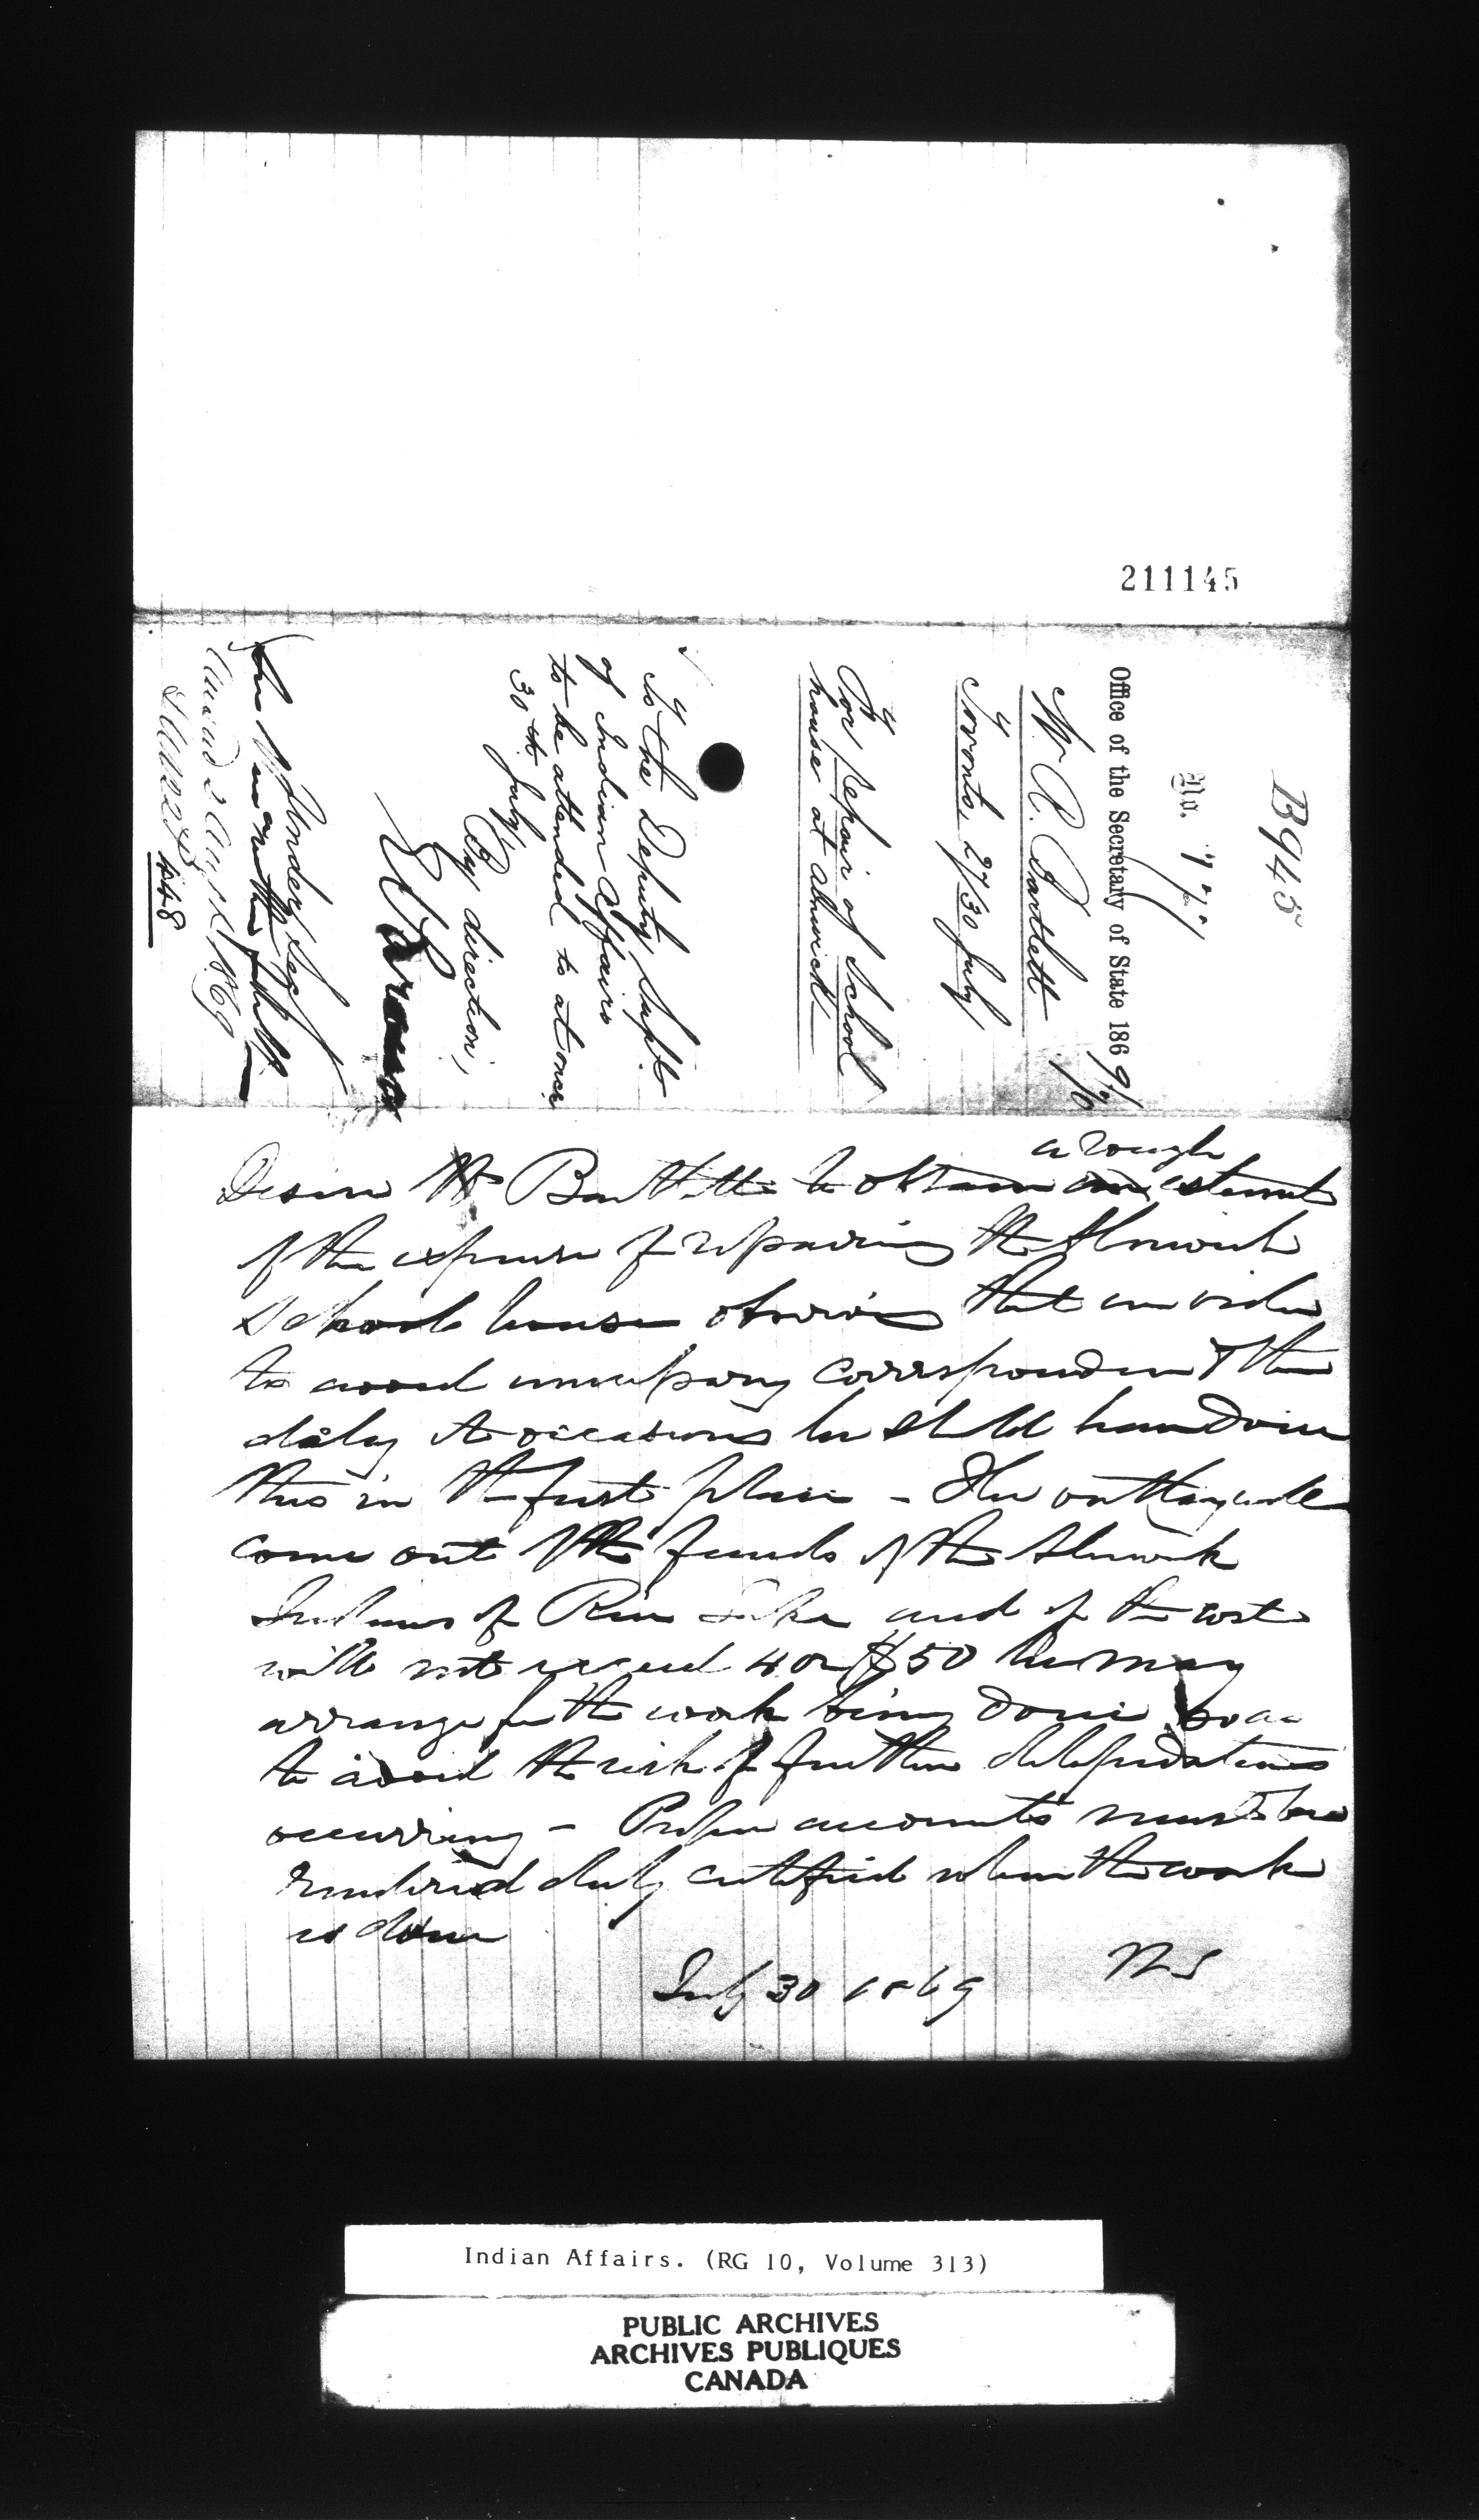 211145
B945
No. 777
Office of the Secretary of State 1869
W. R. Bartlett
Toronto, 27/30 July
For Repair of School
house at Alnwick
To the Deputy Supt
of Indian Affairs
to be attended to at once
By direction,
30th July
Under Sec
448
a rough
Desire Mr Bartlett to obtain an estimate
of the expense of repairing the Alnwick
School house observing that in order
to avoid unnecessary correspondence & the
delay it occasions he should have done
this in the first place - The outlay will
come out of the funds of the Alnwick
Indians of Rice Lake and if the cost
will not exceed 40 or $50 he may
arrange for the work being done so as
to avoid the risk of further dilapidations
occurring - Proper accounts must be
rendered duly certified when the work
is done
July 30 1869
Indian Affairs. (RG 10, Volume 313)
PUBLIC ARCHIVES
ARCHIVES PUBLIQUES
CANADA